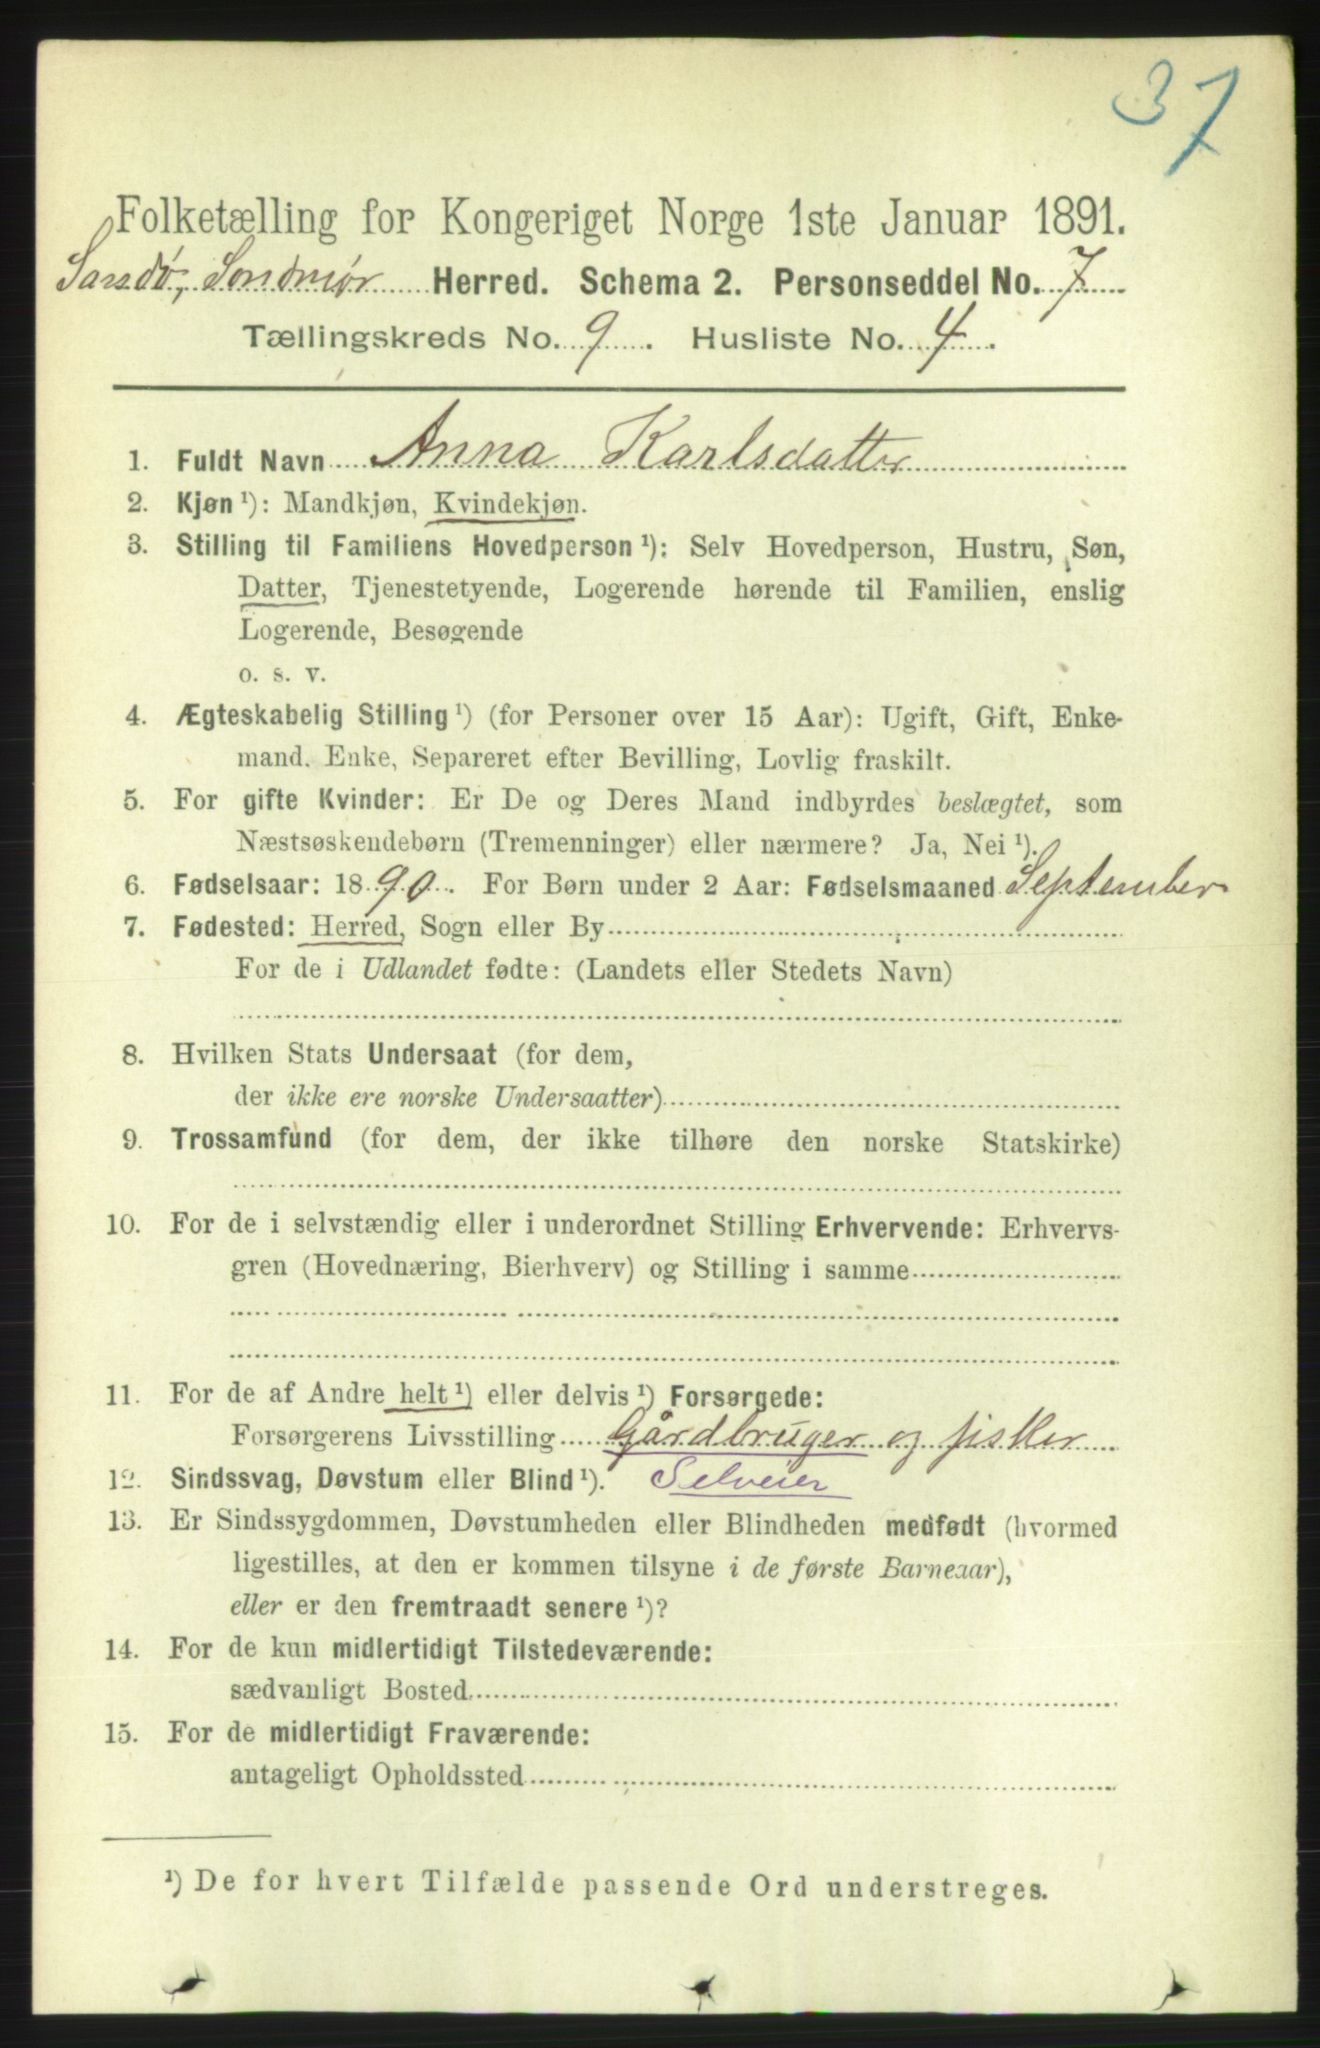 37
Folketælling for Kongeriget Norge 1ste Januar 1891.
Sandø, Søndmør Herred. Schema 2. Personseddel No. 7
Tællingskreds No. 9. Husliste No. 4.
1. Fuldt Navn Anna Karlsdatter
2. Kjøn ¹): Mandkjøn, Kvindekjøn.
3. Stilling til Familiens Hovedperson ¹): Selv Hovedperson, Hustru, Søn,
Datter, Tjenestetyende, Logerende hørende til Familien, enslig
Logerende, Besøgende
o. s. v.
4. Ægteskabelig Stilling ¹) (for Personer over 15 Aar): Ugift, Gift, Enke-
mand, Enke, Separeret efter Bevilling, Lovlig fraskilt.
5. For gifte Kvinder: Er De og Deres Mand indbyrdes beslægtet, som
Næstsøskendebørn (Tremenninger) eller nærmere? Ja, Nei ¹).
6. Fødselsaar: 1890. For Børn under 2 Aar: Fødselsmaaned September
7. Fødested: Herred, Sogn eller By
For de i Udlandet fødte: (Landets eller Stedets Navn)
8. Hvilken Stats Undersaat (for dem,
der ikke ere norske Undersaatter)
9. Trossamfund (for dem, der ikke tilhøre den norske Statskirke)
10. For de i selvstændig eller i underordnet Stilling Erhvervende: Erhvervs-
gren (Hovednæring, Bierhverv) og Stilling i samme
11. For de af Andre helt ¹) eller delvis ¹) Forsørgede:
Forsørgerens Livsstilling Gårdbruger og fisker
12. Sindssvag, Døvstum eller Blind ¹). Selveier
13. Er Sindssygdommen, Døvstumheden eller Blindheden medfødt (hvormed
ligestilles, at den er kommen tilsyne i de første Barneaar),
eller er den fremtraadt senere ¹)?
14. For de kun midlertidigt Tilstedeværende:
sædvanligt Bosted
15. For de midlertidigt Fraværende:
antageligt Opholdssted
¹) De for hvert Tilfælde passende Ord understreges.